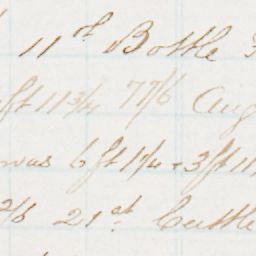 11th Bottle
ft 11 3/4 77/6 Aug
was 6 ft 1 1/4 - 3 ft 11
2/6 21st Cattle